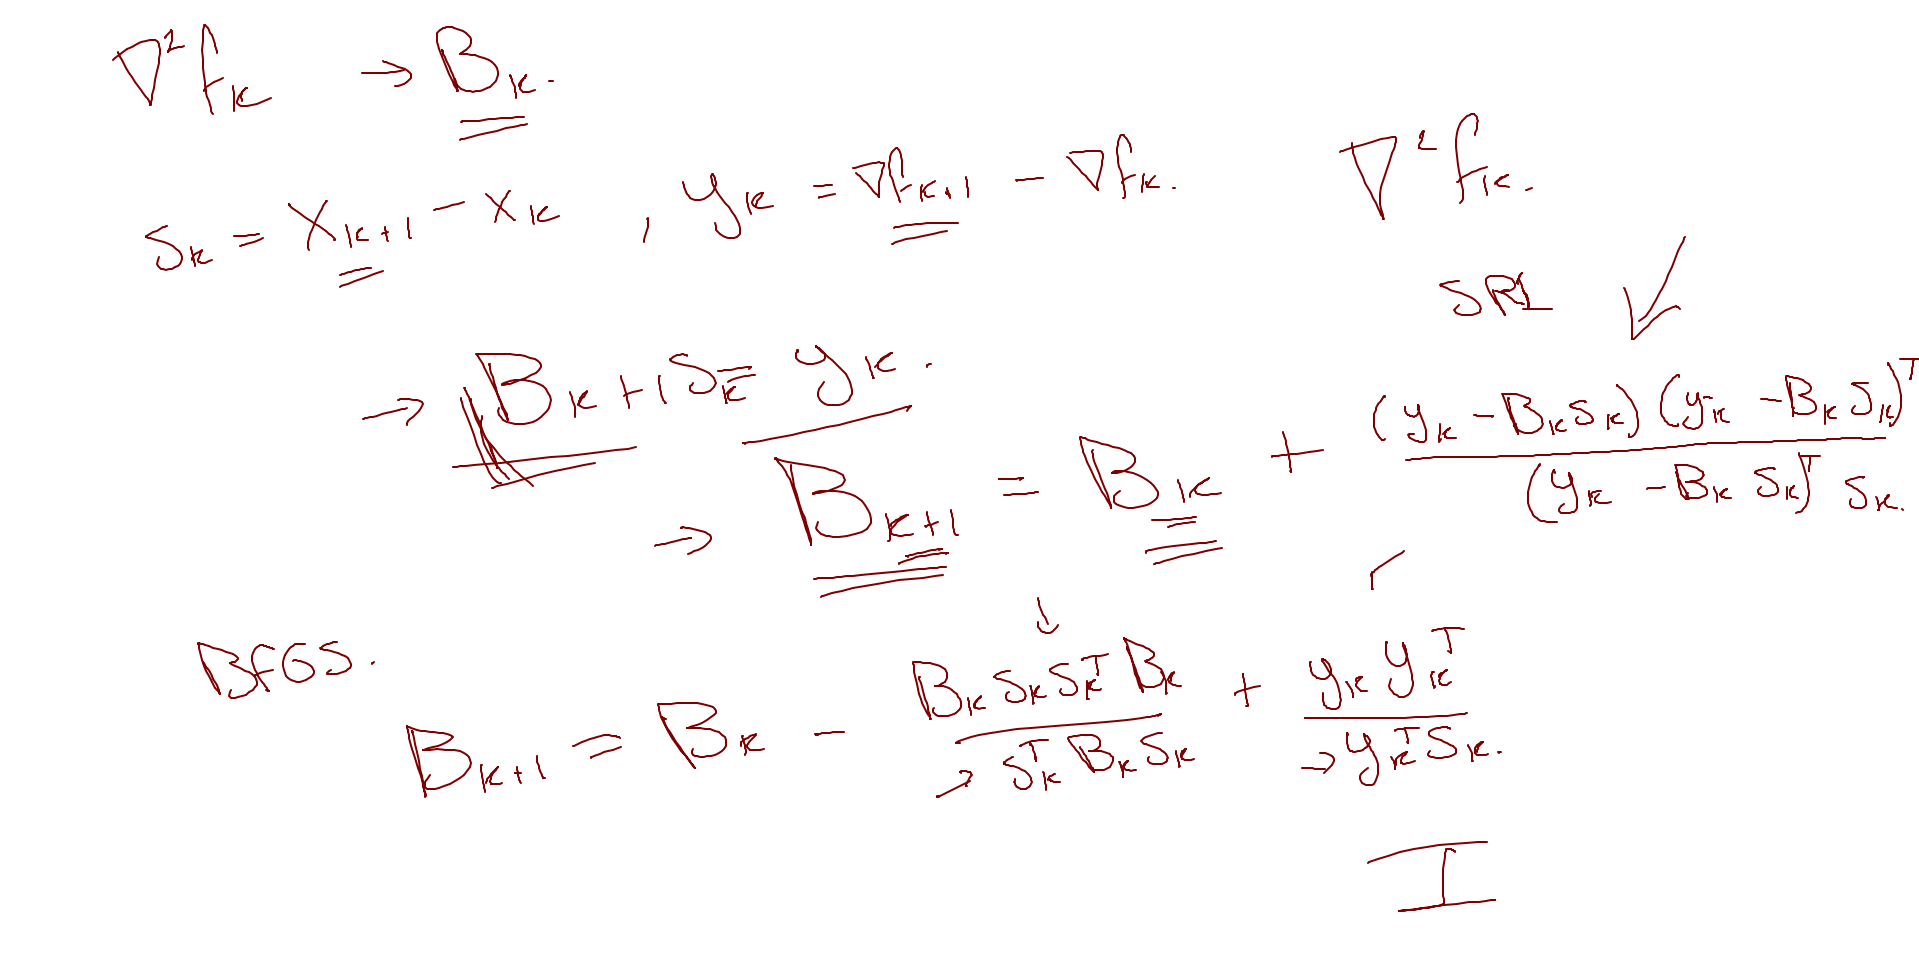 ∇² f_k → B_k.
s_k = x_{k+1} - x_k , y_k = ∇f_{k+1} - ∇f_k. ∇² f_k.
SR1
→ B_{k+1} s_k = y_k.
→ B_{k+1} = B_k + (y_k - B_k s_k) (y_k - B_k s_k)^T / (y_k - B_k s_k)^T s_k.
BFGS.
B_{k+1} = B_k - B_k s_k s_k^T B_k / s_k^T B_k s_k + y_k y_k^T / y_k^T s_k.
I